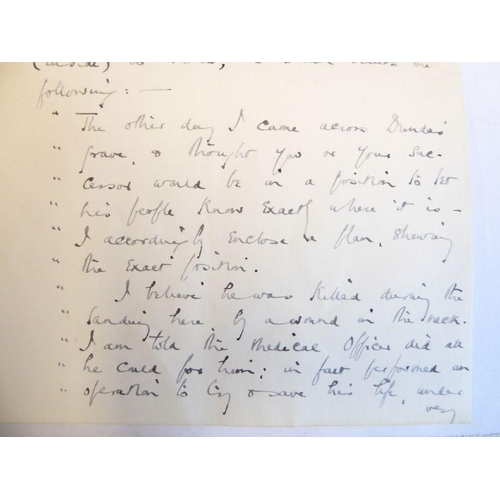 (inside) me
following: —
" The other day I came across Dundas'
" grave, & thought you or your suc-
" cessor would be in a position to let
" his people know exactly where it is —
" I accordingly enclose a plan, shewing
" the exact position.
" I believe he was killed during the
" landing here by a wound in the neck.
" I am told the Medical Officer did all
" he could for him; in fact performed an
" operation to try & save his life, under
very